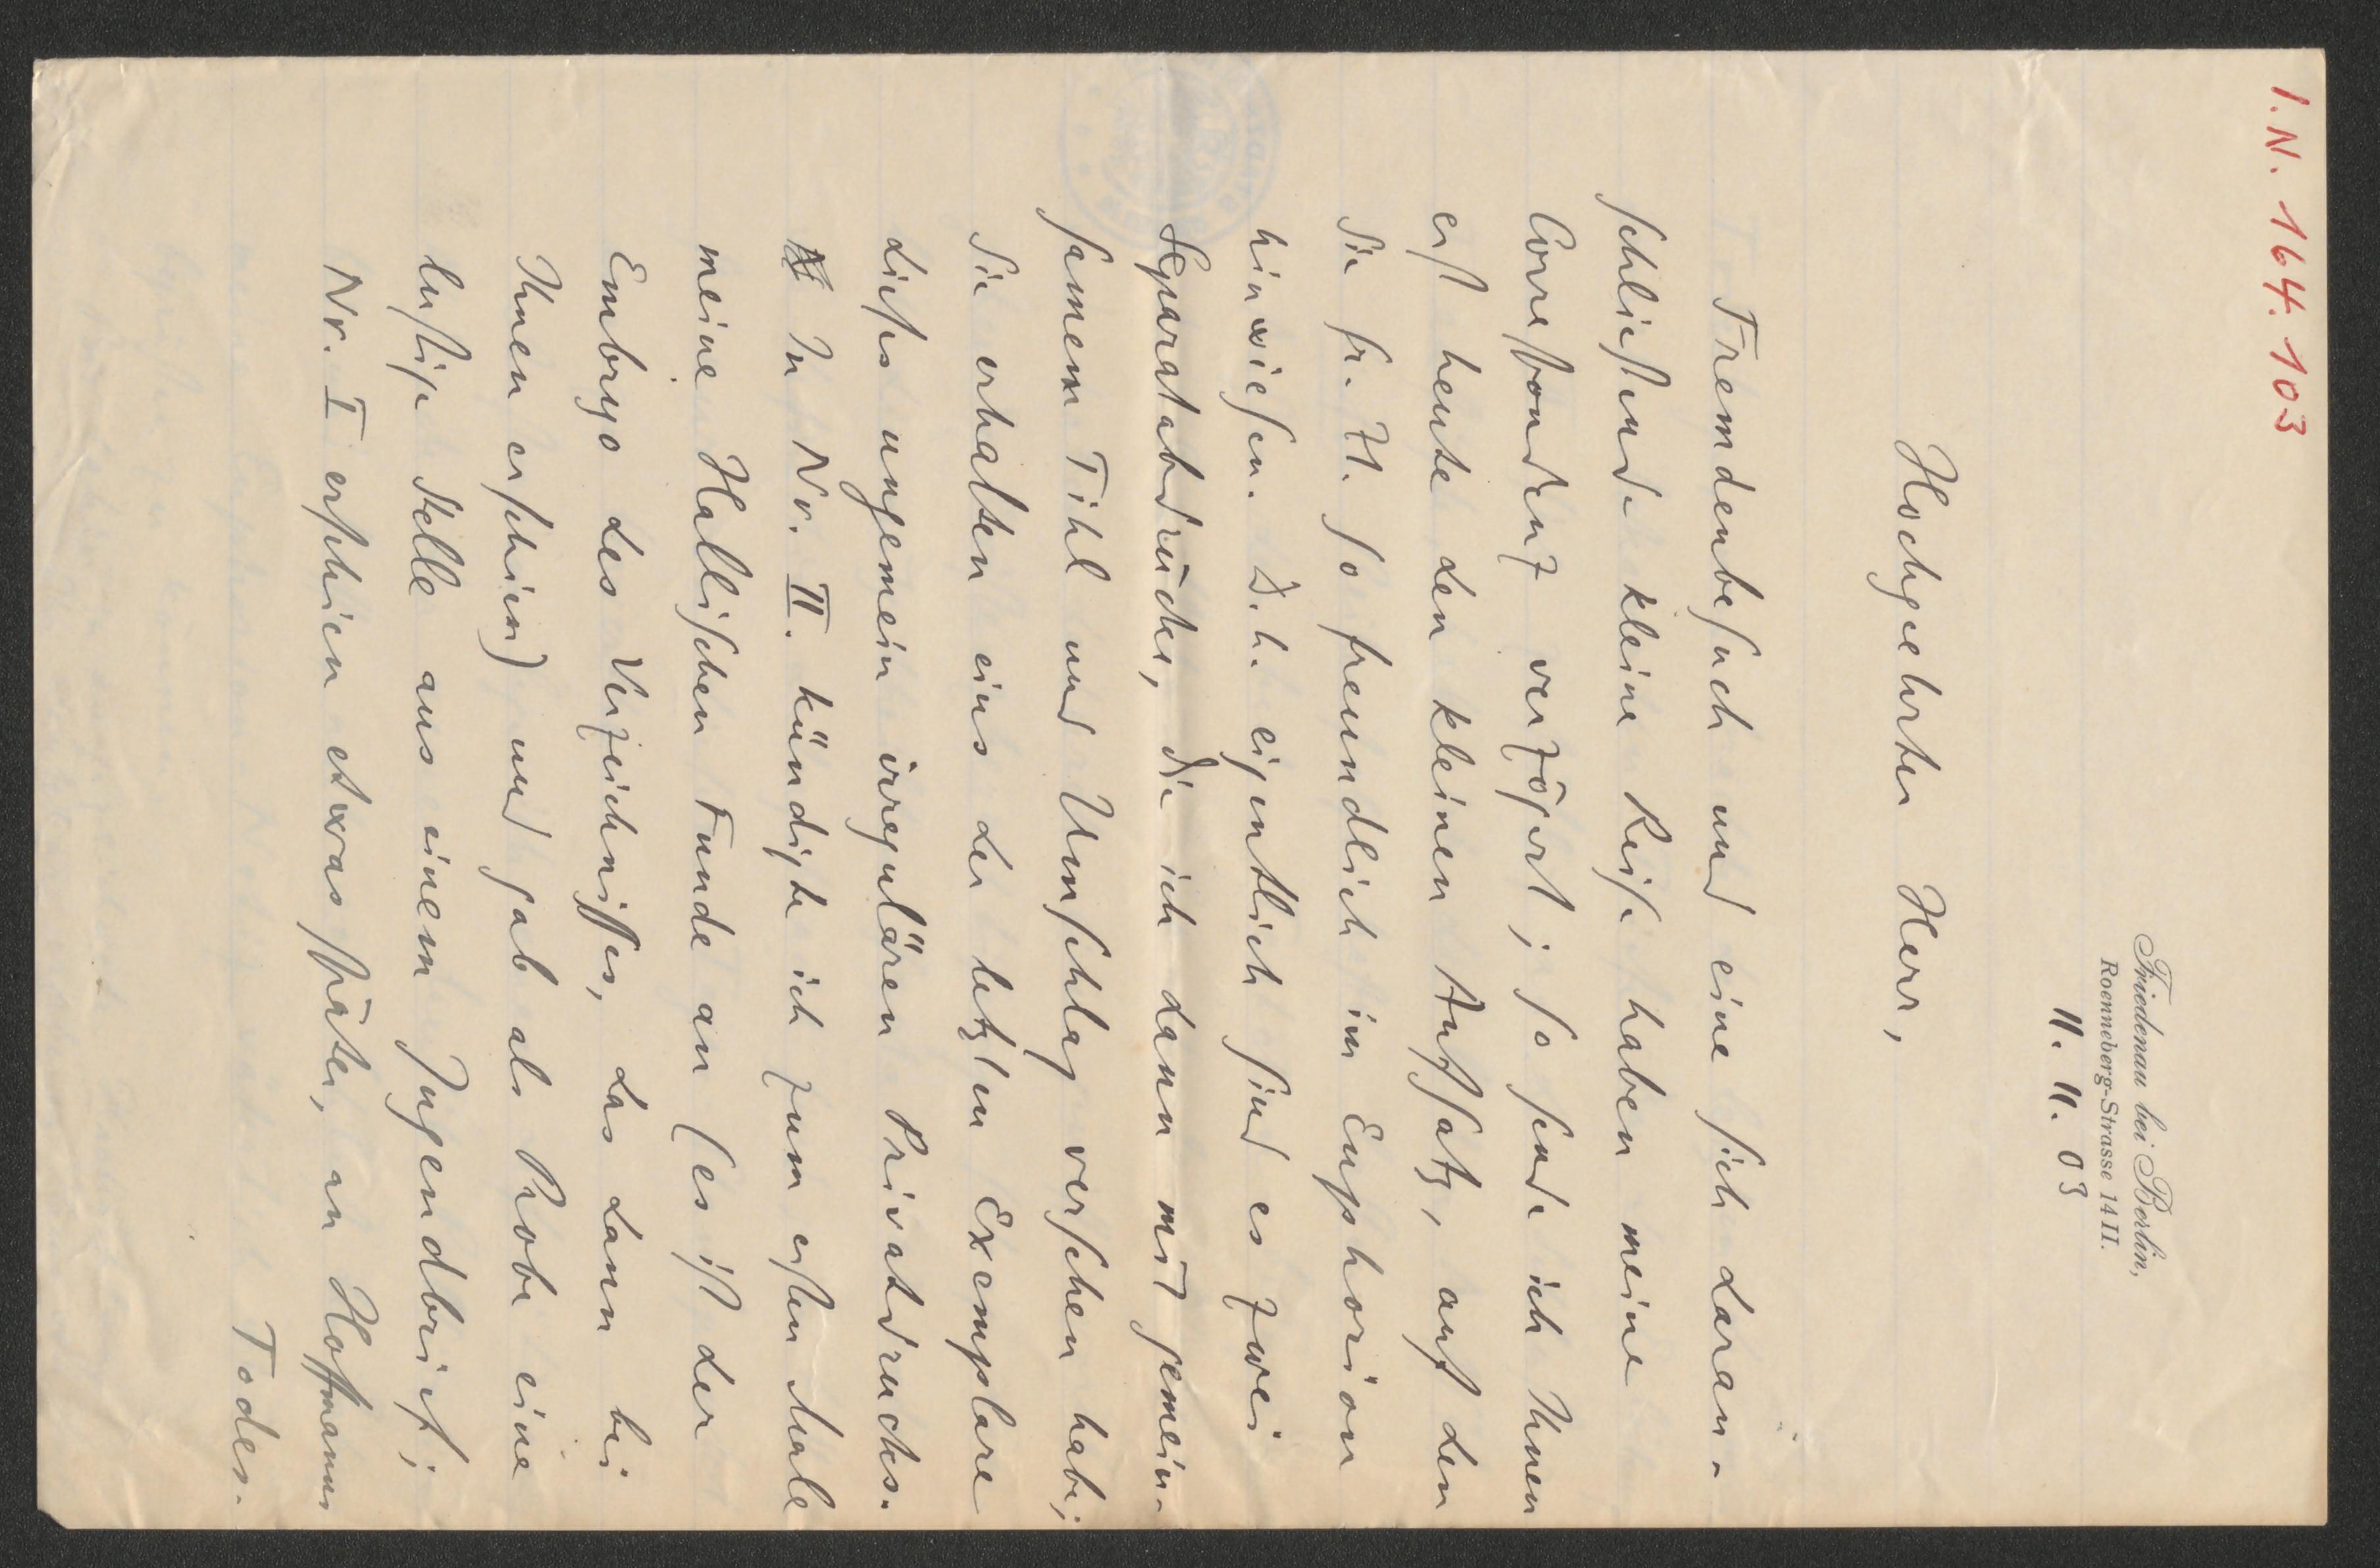 I. N. 164. 103
Friedenau bei Berlin,
Roenneberg-Strasse 14 II.
11. 11. 03
Hochgeehrter Herr,
Fremdenbesuch und eine sich daran-
schließende kleine Reise haben meine
Correspondenz verzögert; so sende ich Ihnen
erst heute den kleinen Aufsatz, auf den
Sie s. Zt. so freundlich im Euphorion
hinwiesen. D. h. eigentlich sind es zwei
Separatabdrücke, die ich dann mit gemein-
samem Titel und Umschlag versehen habe;
Sie erhalten eins der letzten Exemplare
dieses ungemein irregulären Privatdrucks.
In No. II. kündigte ich zum ersten Male
meine Hallischen Funde an (es ist der
Embryo des Verzeichnisses, das dann bei
Ihnen erschien) und gab als Probe eine
lustige Stelle aus einem Jugendbrief;
No. I erschien etwas später, an Hoffmanns
Todes-